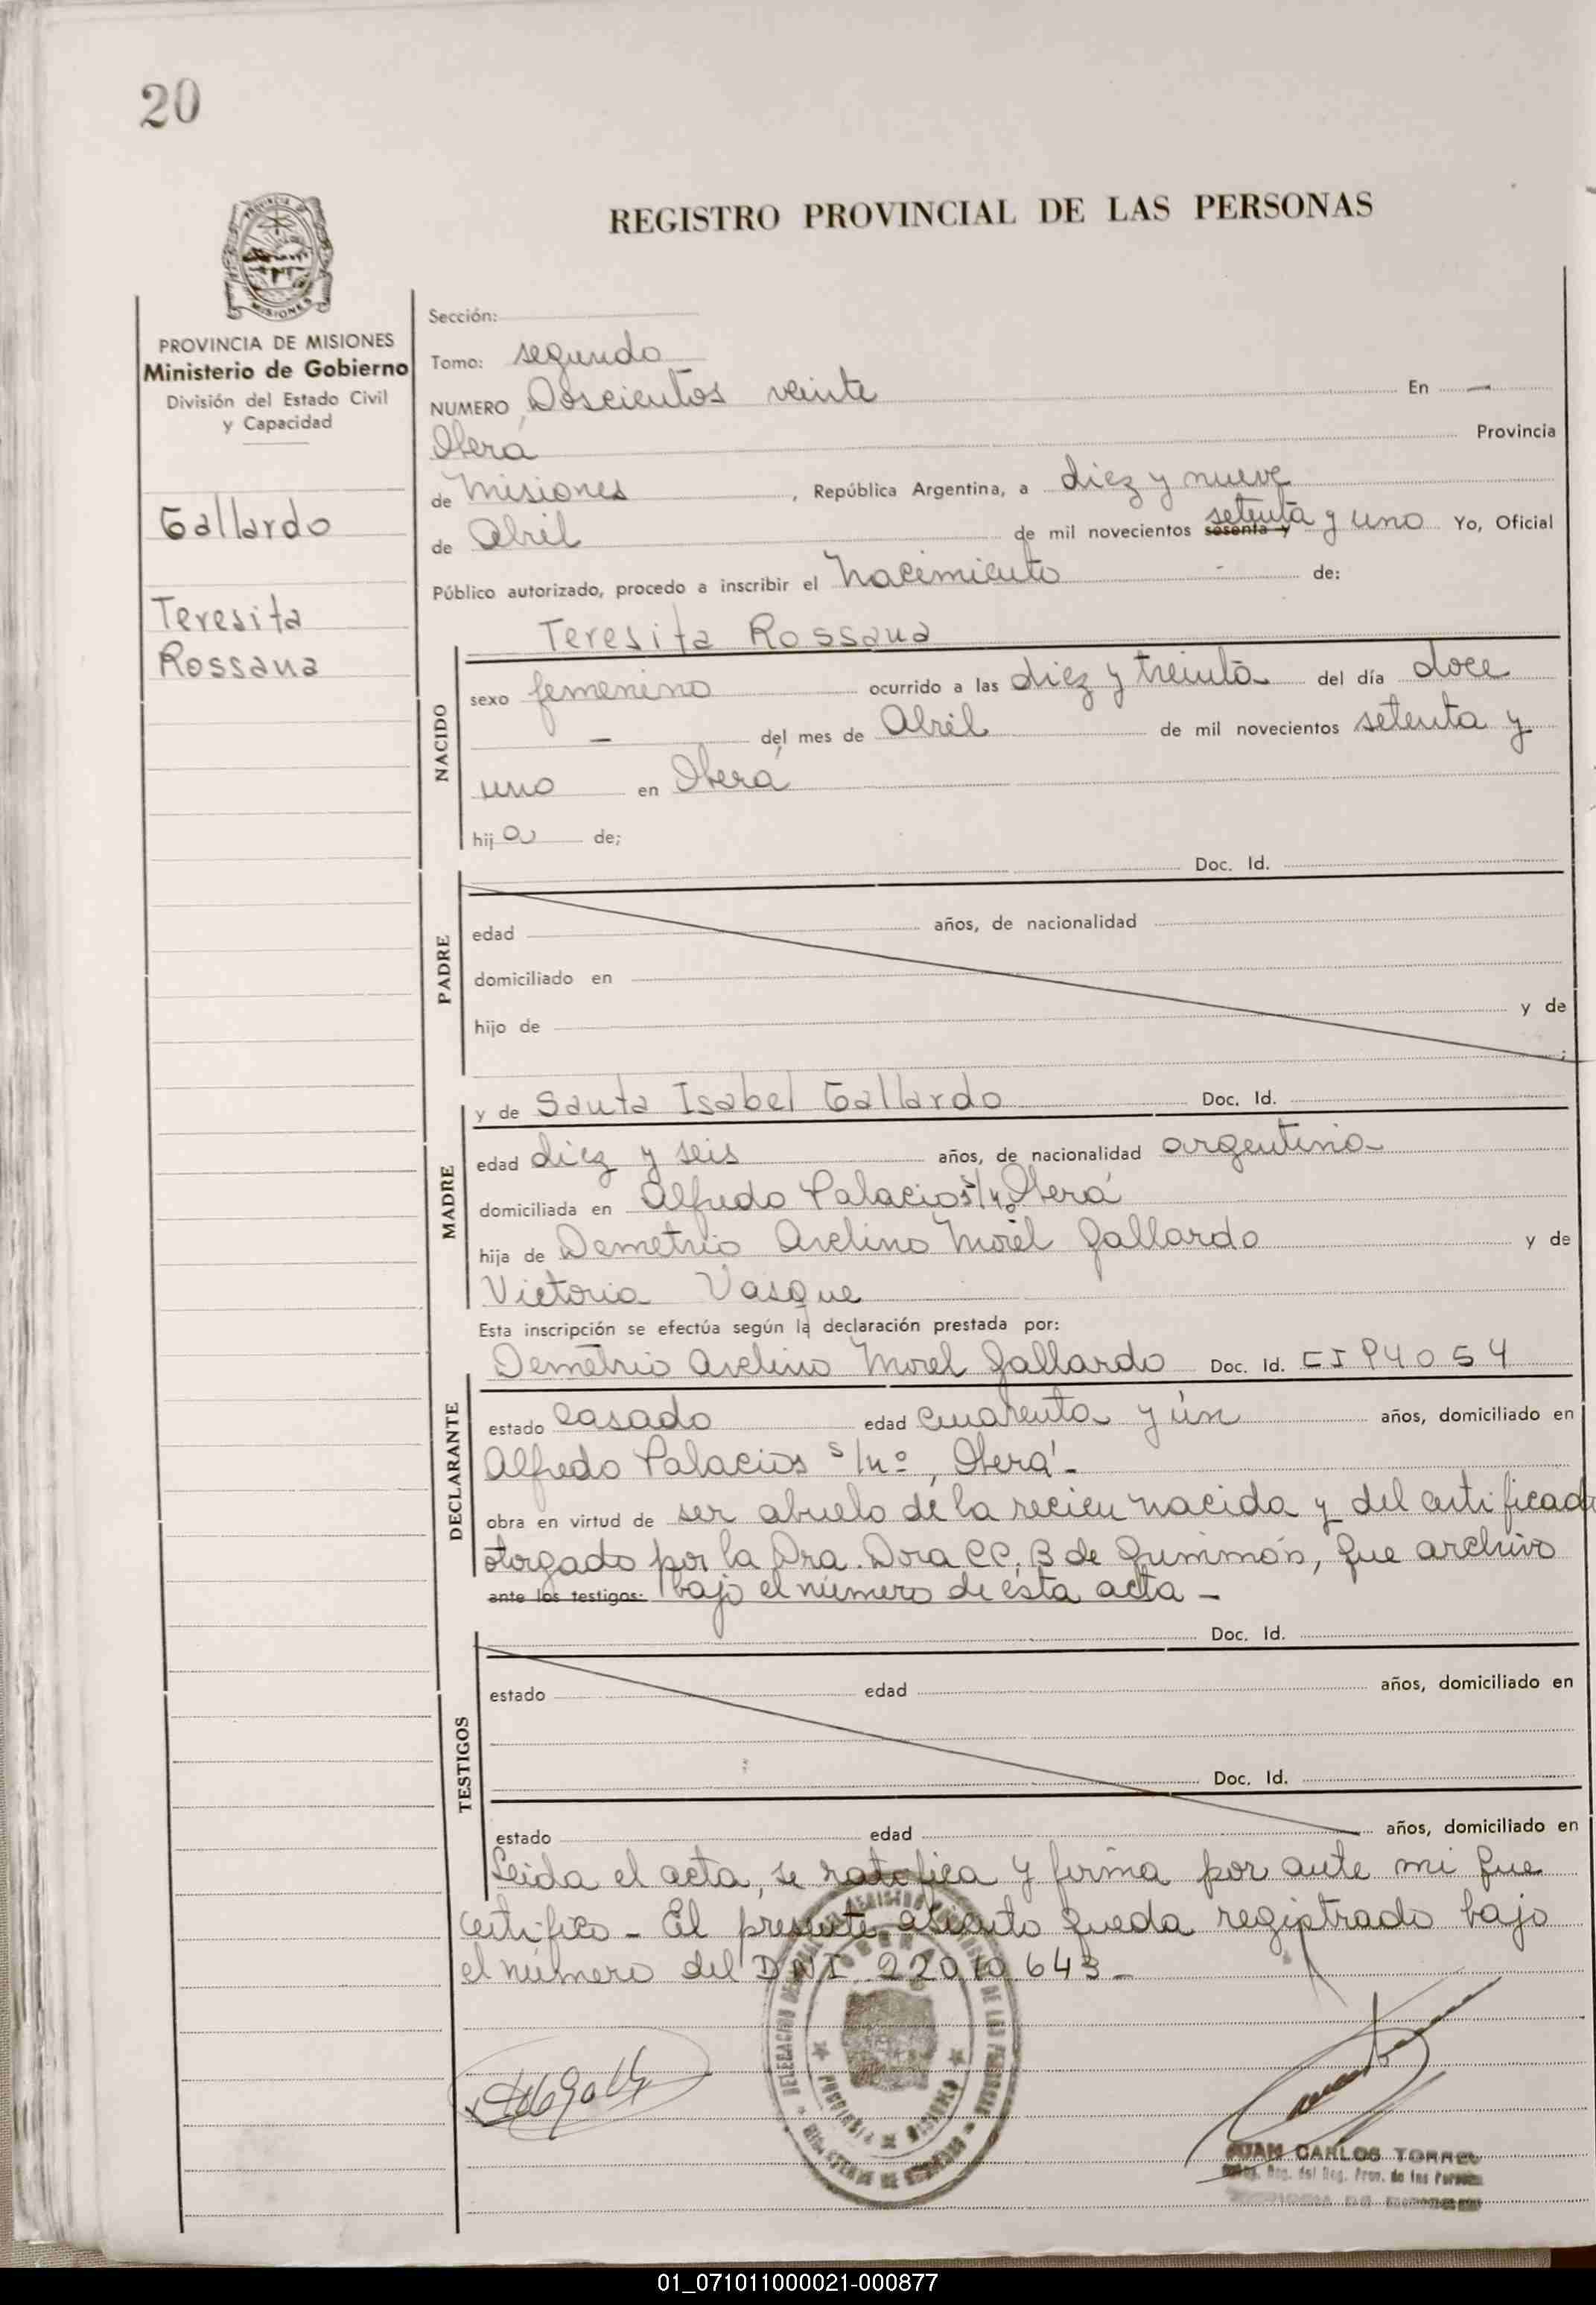 20
REGISTRO PROVINCIAL DE LAS PERSONAS
MISIONES
PROVINCIA DE MISIONES
Ministerio de Gobierno
División del Estado Civil
y Capacidad
Gallardo
Teresita
Rossana
Sección:
Tomo: segundo
NUMERO Doscientos veinte En —
Oberá Provincia
de Misiones, República Argentina, a diez y nueve
de Abril de mil novecientos sesenta y setenta y uno Yo, Oficial
Público autorizado, procedo a inscribir el Nacimiento - de:
Teresita Rossana
NACIDO
sexo femenino ocurrido a las diez y treinta del día doce
— del mes de Abril de mil novecientos setenta y
uno en Oberá
hija de;
PADRE
Doc. Id.
edad años, de nacionalidad
domiciliado en
hijo de y de
;
MADRE
y de Santa Isabel Gallardo Doc. Id.
edad diez y seis años, de nacionalidad argentina
domiciliada en Alfredo Palacios s/nº Oberá
hija de Demetrio Avelino Morel Gallardo y de
Victoria Vasque
Esta inscripción se efectúa según la declaración prestada por:
DECLARANTE
Demetrio Avelino Morel Gallardo Doc. Id. CI 94054
estado Casado edad cuarenta y ún años, domiciliado en
Alfredo Palacios s/nº, Oberá -
obra en virtud de ser abuelo de la recien nacida y del certificado
otorgado por la Dra. Dora CC. B de que archivo
ante los testigos: bajo el número de ésta acta -
TESTIGOS
Doc. Id.
estado edad años, domiciliado en
Doc. Id.
estado edad años, domiciliado en
Leida el acta, se ratifica y firma por ante mi que
certifico - El presente asiento queda registrado bajo
el número del DNI 22010.643 -
JUAN CARLOS TORRES
del Reg. Prov. de las Personas
01_071011000021-000877